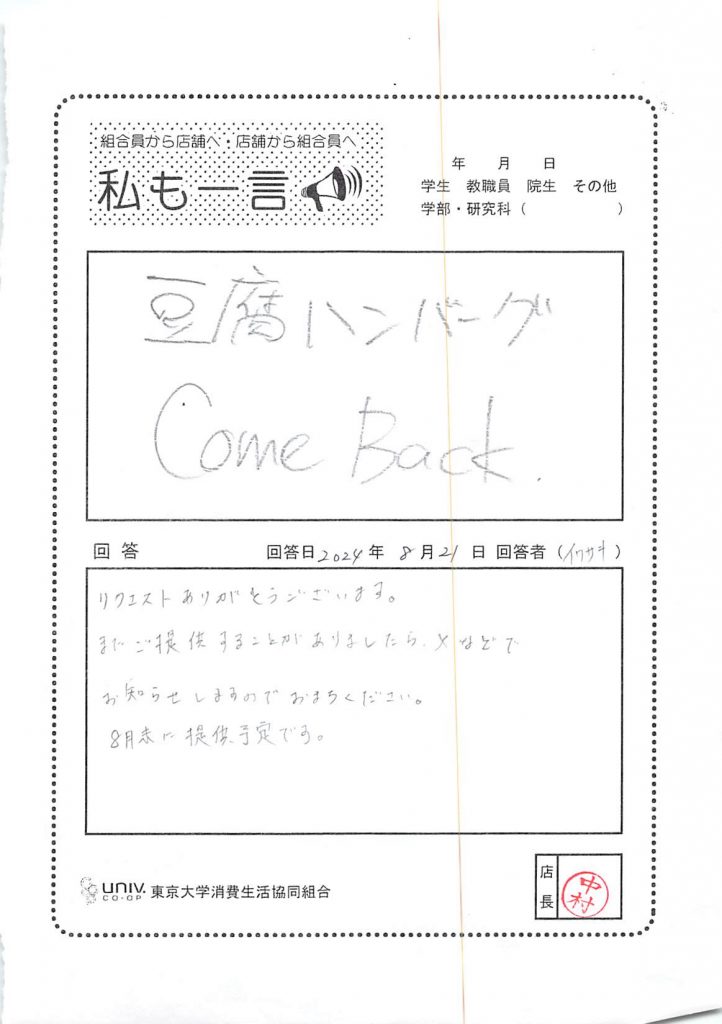 組合員から店舗へ・店舗から組合員へ
私も一言
年 月 日
学生 教職員 院生 その他
学部・研究科（ ）
豆腐ハンバーグ
Come Back.
回答 回答日2024年 8月21日 回答者（イワサキ）
リクエストありがとうございます。
またご提供することがありましたら、Xなどで
お知らせしますのでおまちください。
8月末に提供予定です。
UNIV. CO-OP 東京大学消費生活協同組合
店長 中村